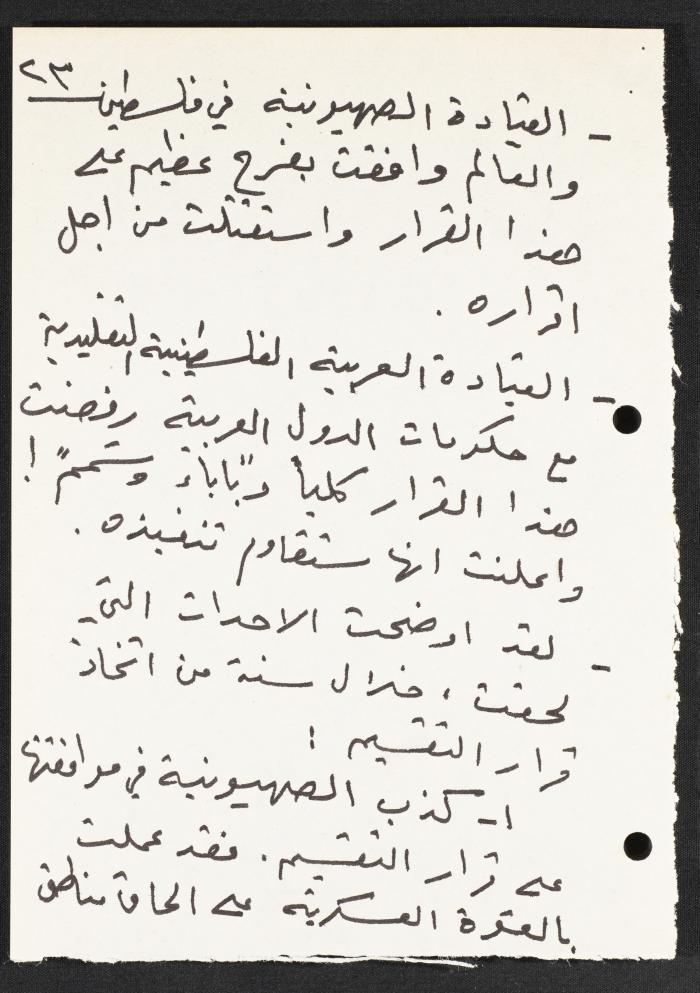 ٢٣
- القيادة الصهيونية في فلسطين
والعالم وافقت بفرح عظيم على
هذا القرار واستقتلت من اجل
اقراره .
- القيادة العربية الفلسطينية التقليدية
مع حكومات الدول العربية رفضت
هذا القرار كلياً و"بإباء وشمم" !
واعلنت انها ستقاوم تنفيذه .
- لقد اوضحت الاحداث التي
لحقت ، خلال سنة من اتخاذ
قرار التقسيم :
١- كذب الصهيونية في موافقتها
على قرار التقسيم . فقد عملت
بالقوة العسكرية على الحاق مناطق